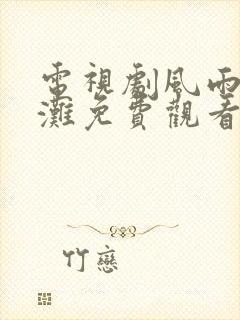 電視劇風雨
灘免費觀看
竹戀